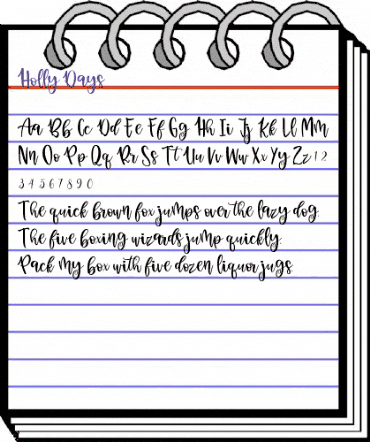 Holly Days
Aa Bb Cc Dd Ee Ff Gg Hh Ii Jj Kk Ll Mm
Nn Oo Pp Qq Rr Ss Tt Uu Vv Ww Xx Yy Zz 1 2
3 4 5 6 7 8 9 0
The quick brown fox jumps over the lazy dog.
The five boxing wizards jump quickly.
Pack my box with five dozen liquor jugs